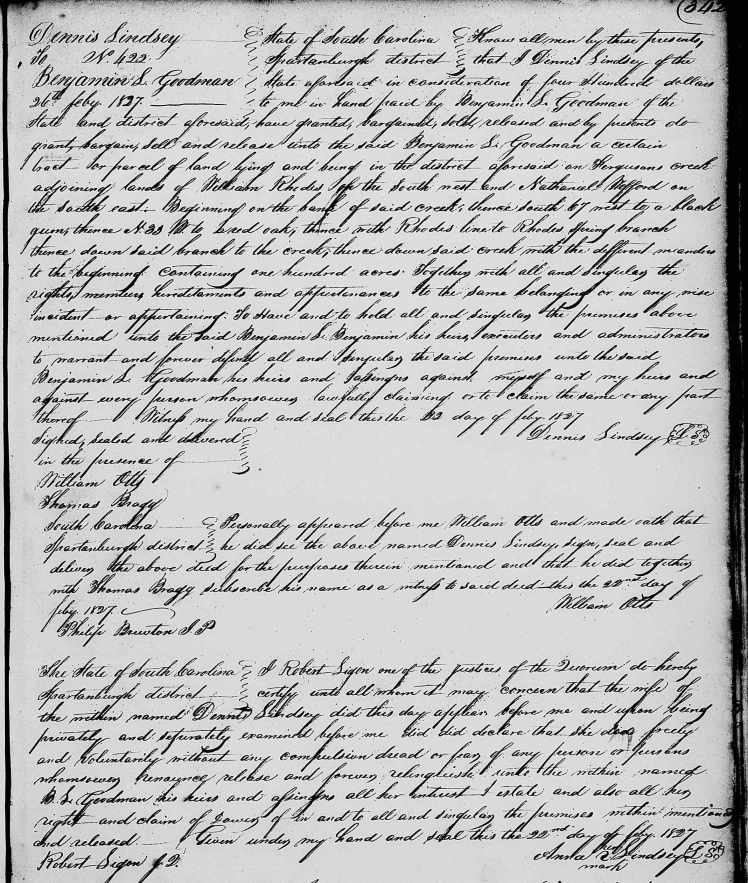 342
Dennis Lindsey State of South Carolina Know all men by these presents,
To No. 422 Spartanburgh district that I Dennis Lindsey of the
Benjamin L. Goodman State aforesaid in consideration of four Hundred dollars
26th feby 1827. to me in hand paid by Benjamin L. Goodman of the
State and district aforesaid, have granted, bargained, sold, released and by presents do
grant, bargain, sell and release unto the said Benjamin L. Goodman a certain
tract or parcel of land lying and being in the district aforesaid on Fergusons creek
adjoining lands of William Rhodes on the South west and Nathaniel Wofford on
the South east. Beginning on the bank of said creek, thence south 67 west to a black
gum, thence N. 23 W to a red oak, thence with Rhodes line to Rhodes Spring branch
thence down said branch to the creek, thence down said creek with the different meanders
to the beginning. Containing one hundred acres. Together with all and singular the
rights, members hereditaments and appertenances to the same belonging or in any wise
incident or appertaining. To Have and to hold all and singular the premises above
mentioned unto the said Benjamin L. Benjamin his heirs, executors and administrators
to warrant and forever defend all and singular the said premises unto the said
Benjamin L. Goodman his heirs and assigns against myself and my heirs and
against every person whomsoever lawfully claiming or to claim the same or any part
thereof Witness my hand and seal this the 22 day of feby. 1827
Signed, sealed and delivered Dennis Lindsey L S
in the presence of
William Otts
Thomas Bragg
South Carolina Personally appeared before me William Otts and made oath that
Spartanburgh district he did see the above named Dennis Lindsey, sign, seal and
deliver the above deed for the purposes therein mentioned and that he did together
with Thomas Bragg subscribe his name as a witness to said deed this the 22nd day of
feby. 1827 William Otts
Philip Brewton J P
The State of South Carolina I Robert Ligon one of the justices of the Quorum do hereby
Spartanburgh district certify unto all whom it may concern that the wife of
the within named Dennis Lindsey did this day appear before me and upon being
privately and seperately examined before me did did declare that she does freely
and voluntarily without any compulsion dread or fear of any person or persons
whomsoever renounce, release and forever relinquish unto the within named
B. L. Goodman his heirs and assigns all her interest & estate and also all her
right and claim of Dower of in and to all and singular the premises within mentioned
and released. Given under my hand and seal this the 22nd day of feby. 1827
Robert Ligon J. Q. Anna her Lindsey L S
mark